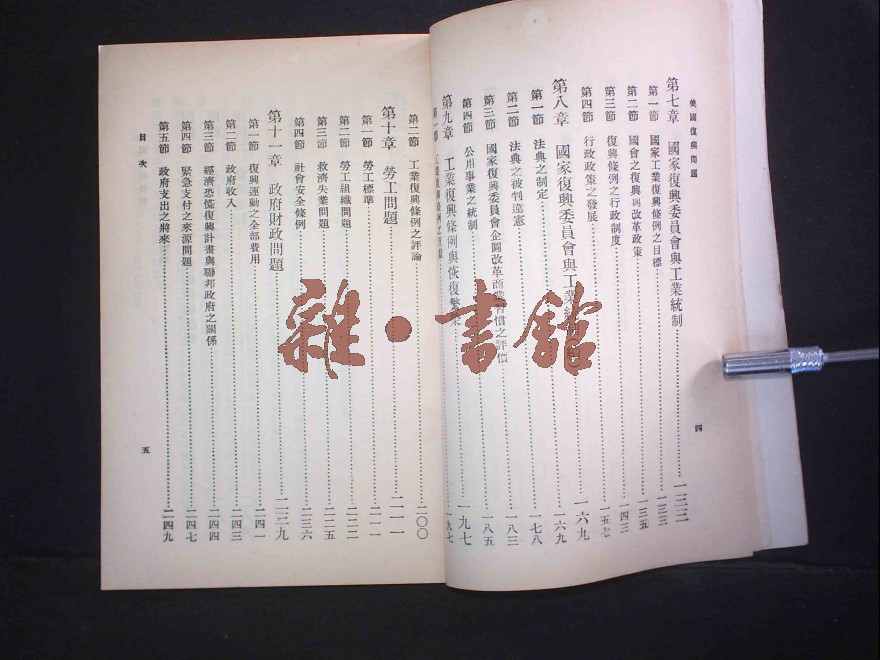 美國復興問題
第七章 國家復興委員會與工業統制……一三三
第一節 國家工業復興條例之目標……一三三
第二節 國會之復興與改革政策……一三五
第三節 復興條例之行政制度……一四三
第四節 行政政策之發展……一五七
第八章 國家復興委員會與工業統制……一六九
第一節 法典之制定……一六九
第二節 法典之被判違憲……一七八
第三節 國家復興委員會企圖改革商業習慣之評價……一八三
第四節 公用事業之統制……一八五
第九章 工業復興條例與恢復繁榮……一九七
第一節……一九七
四
第二節 工業復興條例之評論……二〇〇
第十章 勞工問題……二一一
第一節 勞工標準……二一一
第二節 勞工組織問題……二二二
第三節 救濟失業問題……二二五
第四節 社會安全條例……二三六
第十一章 政府財政問題……二三九
第一節 復興運動之全部費用……二四一
第二節 政府收入……二四三
第三節 經濟恐慌復興計畫與聯邦政府之關係……二四四
第四節 緊急支付之來源問題……二四七
第五節 政府支出之將來……二四九
目次
五
雜·書館